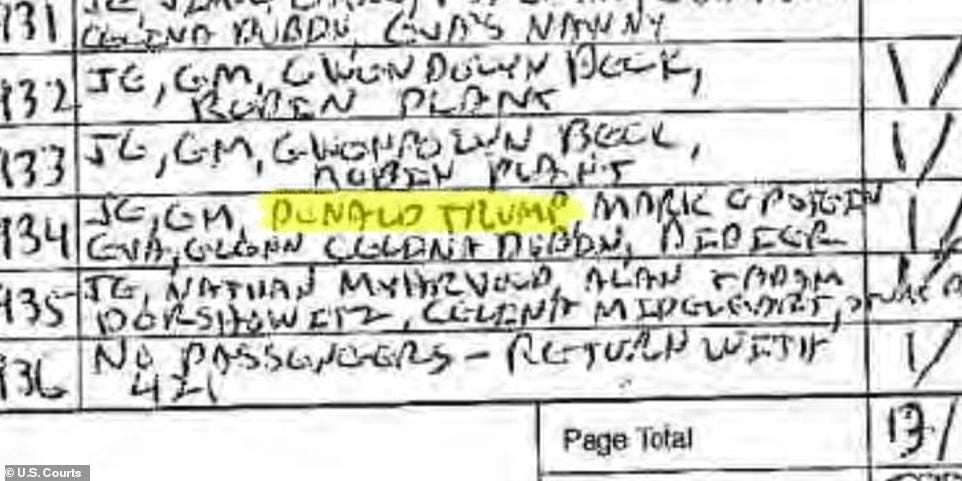 931
CELINA DUBIN, EVA'S NANNY
932 JE, GM, GWENDOLYN BECK,
ROBIN PLANT
933 JE, GM, GWENDOLYN BECK,
ROBIN PLANT
934 JE, GM, DONALD TRUMP MARK EPSTEIN
EVA, GLENN CELINA DUBIN, DIDIER
935 JE, NATHAN MYHRVOLD, ALAN + ADAM
DERSHOWITZ, CELINA MIDELFART,
936 NO PASSENGERS - RETURN WITH
421
Page Total 13
© U.S. Courts